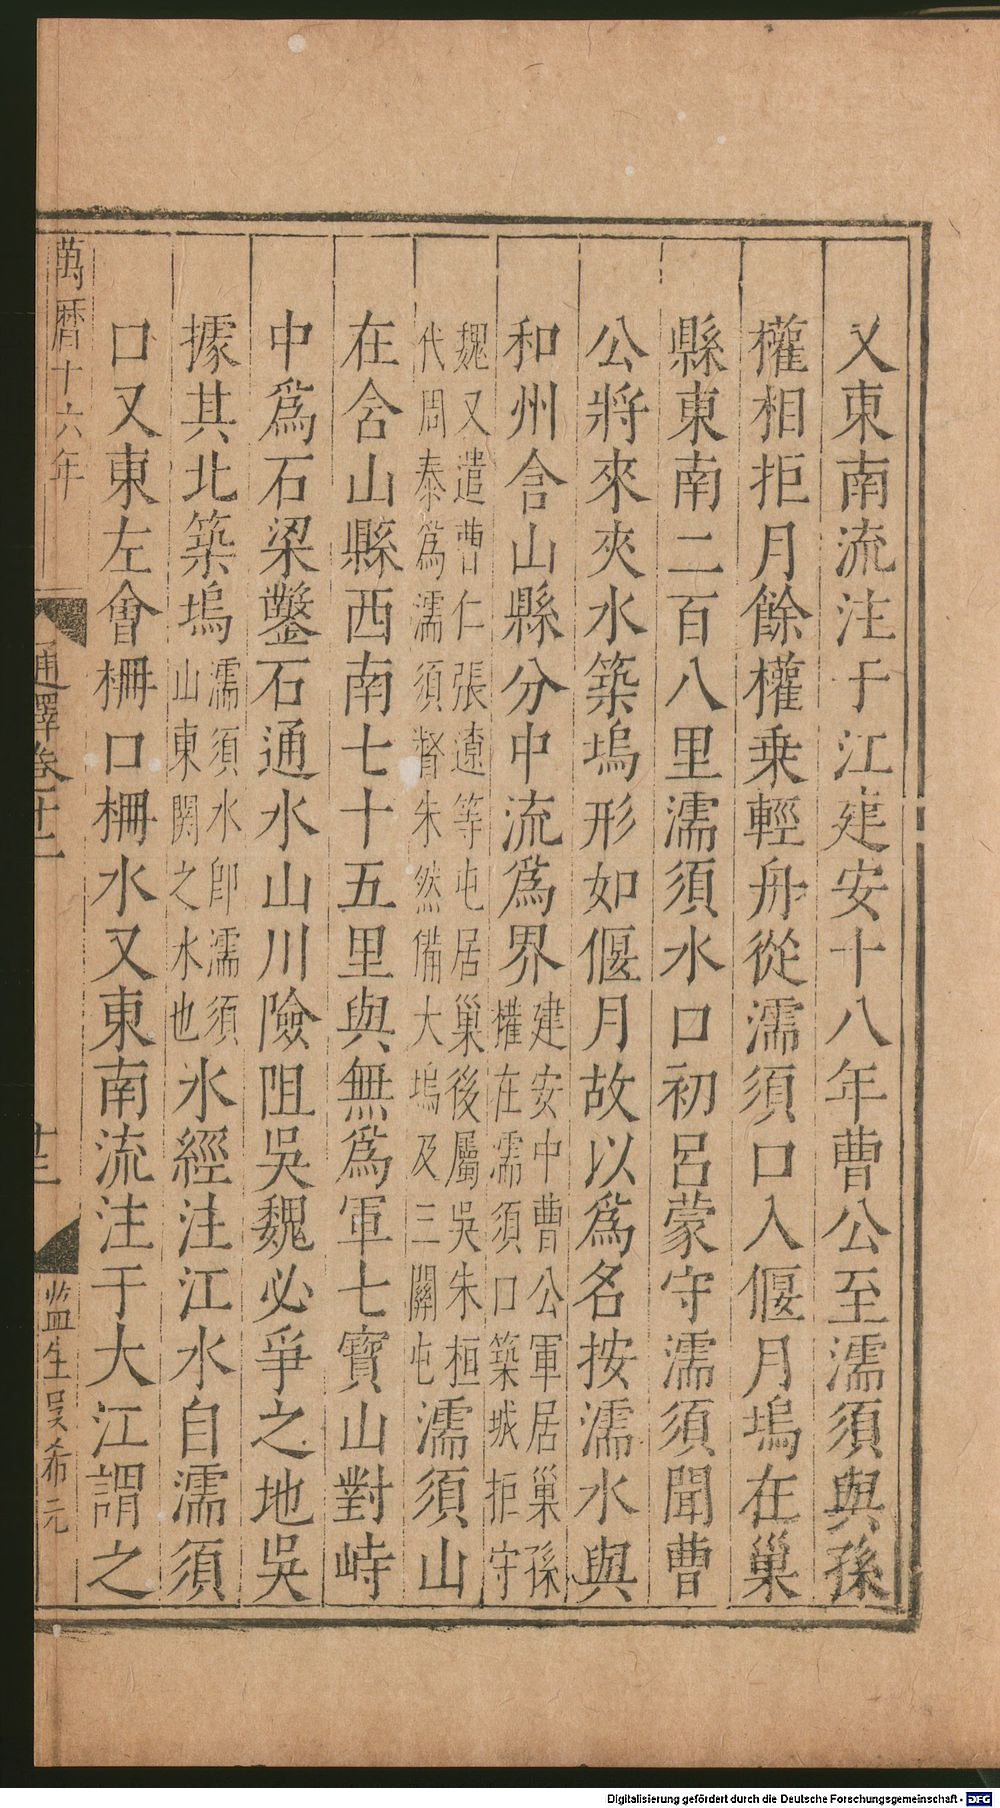 乂東南流注于江建安十八年曹公至濡須與孫
權相拒月餘權乗輕舟從濡須口入偃月塢在巢
縣東南二百八里濡須水口初呂蒙守濡須聞曹
公將來夾水築塢形如偃月故以爲名按濡水與
和州含山縣分中流爲界建安中曹公軍居巢孫權在濡須口築城拒守
魏又遣曹仁張遼等屯居巢後屬吳朱桓代周泰爲濡須督朱然備大塢及三關屯濡須山
在含山縣西南七十五里與無爲軍七寶山對峙
中爲石梁鑿石通水山川險阻吳魏必爭之地吳
據其北築塢濡須水卽濡須山東關之水也水經注江水自濡須
口又東左會柵口柵水又東南流注于大江謂之
萬曆十六年
通釋卷十二
十三
監生吳希元
Digitalisierung gefördert durch die Deutsche Forschungsgemeinschaft - DFG